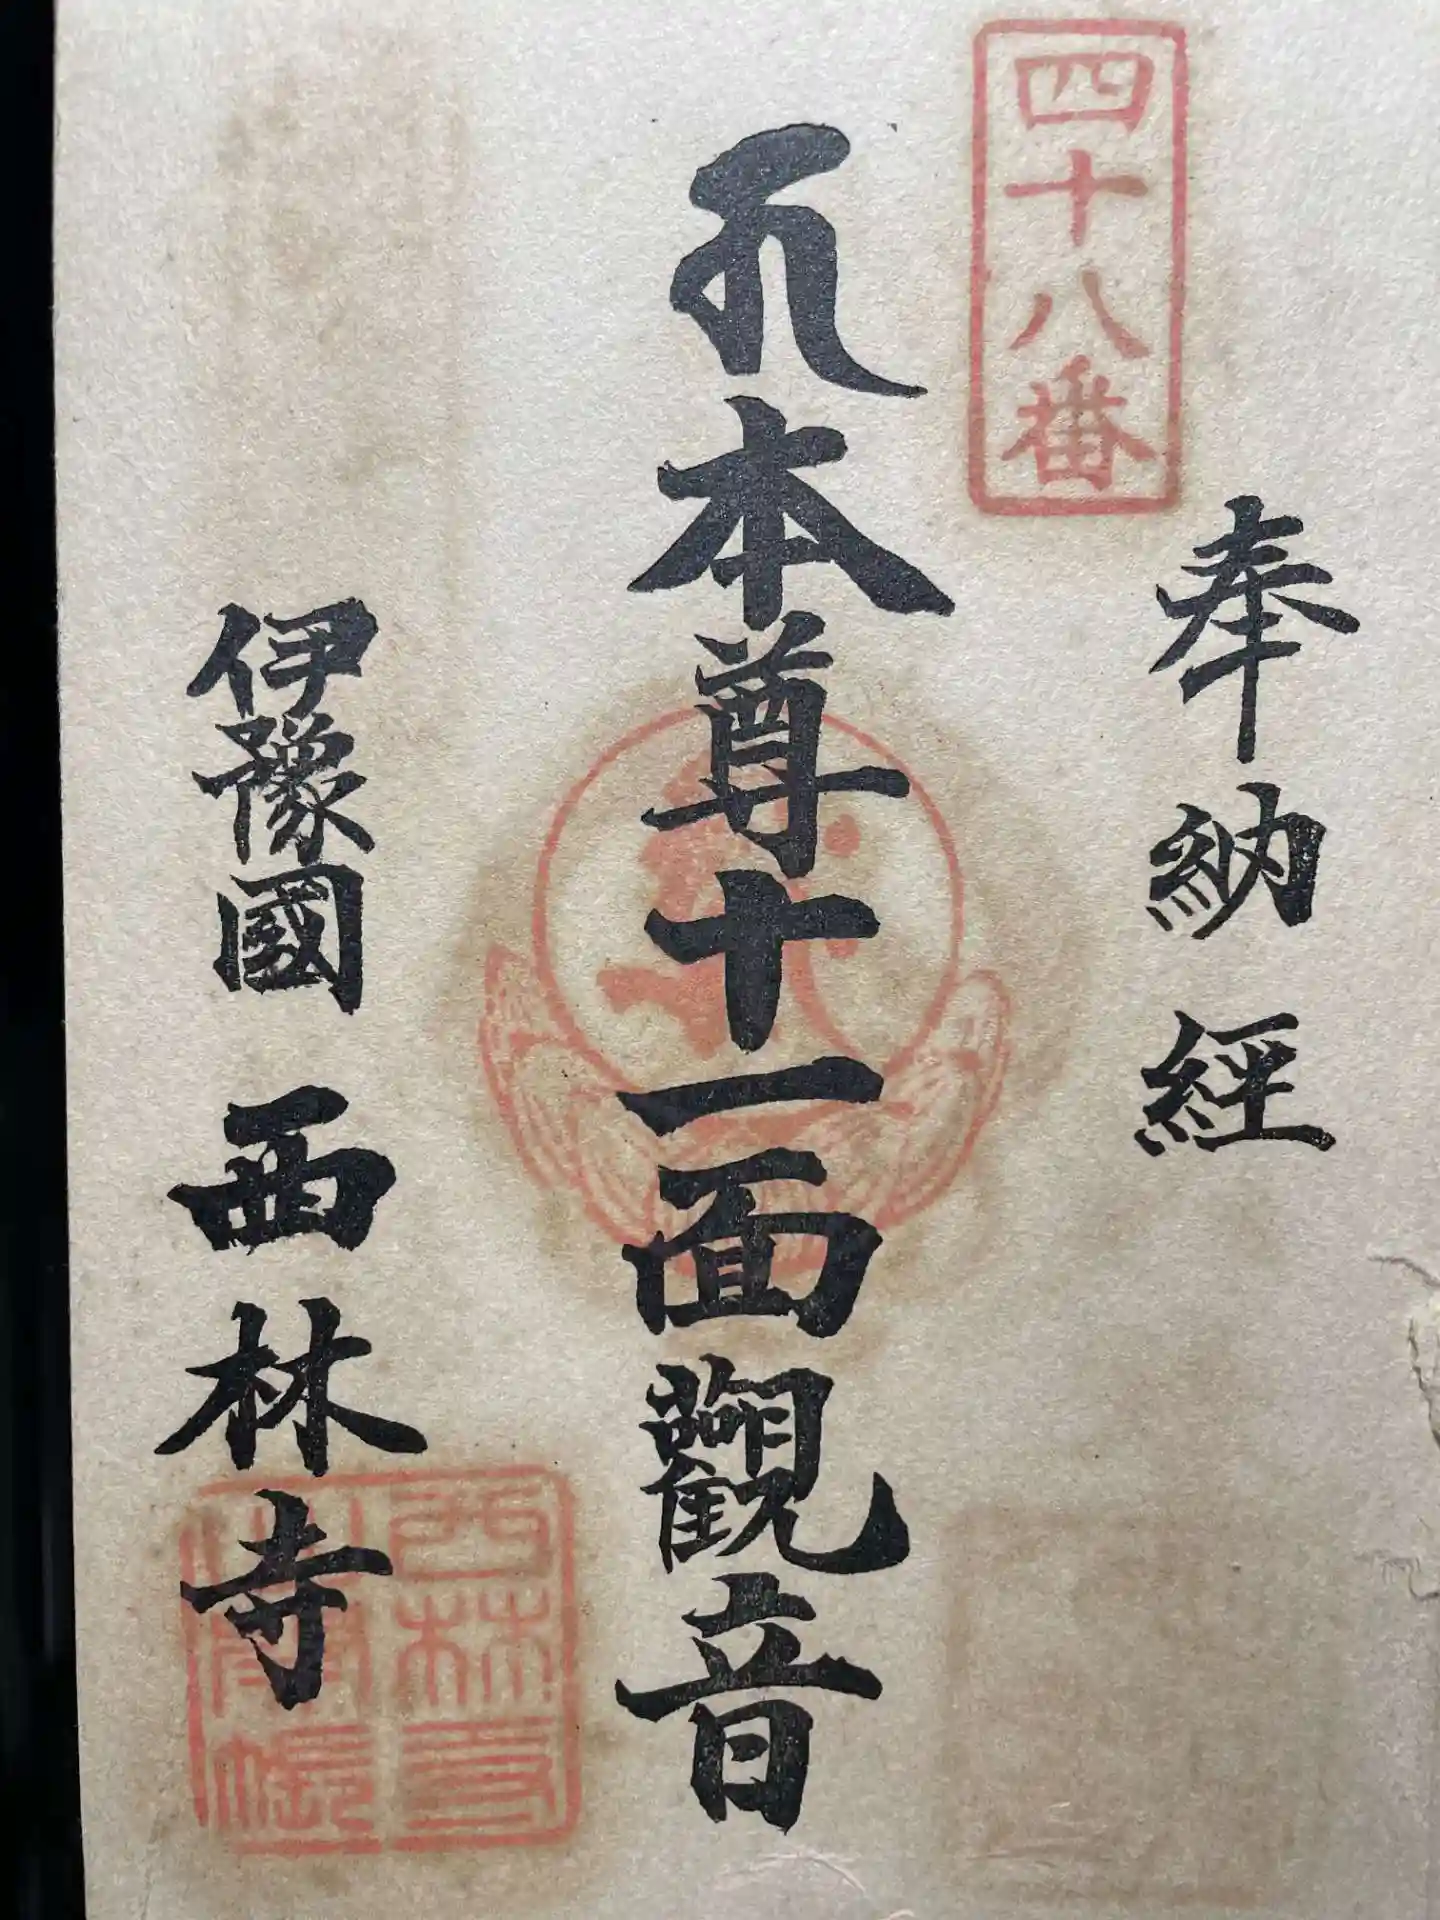 四十八番
奉納経
本尊十一面觀音
伊豫國 西林寺
西林寺